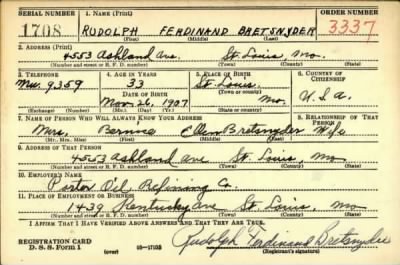 SERIAL NUMBER 1. NAME (Print) ORDER NUMBER
1708 RUDOLPH FERDINAND BRETSNYDER 3337
(First) (Middle) (Last)
2. ADDRESS (Print)
4553 Ashland Ave. St. Louis, Mo.
(Number and street or R. F. D. number) (Town) (County) (State)
3. TELEPHONE 4. AGE IN YEARS 5. PLACE OF BIRTH 6. COUNTRY OF CITIZENSHIP
Mu. 9359 33 St. Louis
DATE OF BIRTH (Town or county)
Nov. 26, 1907 Mo. U.S.A.
(Exchange) (Number) (Mo.) (Day) (Yr.) (State or country)
7. NAME OF PERSON WHO WILL ALWAYS KNOW YOUR ADDRESS 8. RELATIONSHIP OF THAT PERSON
Mrs. Bernice Ellen Bretsnyder Wife
(Mr., Mrs., Miss) (First) (Middle) (Last)
9. ADDRESS OF THAT PERSON
4553 Ashland Ave St. Louis, Mo
(Number and street or R. F. D. number) (Town) (County) (State)
10. EMPLOYER'S NAME
Porter Oil Refining Co.
11. PLACE OF EMPLOYMENT OR BUSINESS
1439 Kentucky Ave St. Louis, Mo
(Number and street or R. F. D. number) (Town) (County) (State)
I AFFIRM THAT I HAVE VERIFIED ABOVE ANSWERS AND THAT THEY ARE TRUE.
REGISTRATION CARD
D. S. S. Form 1 (over) 16—17105 Rudolph Ferdinand Bretsnyder
(Registrant's signature)